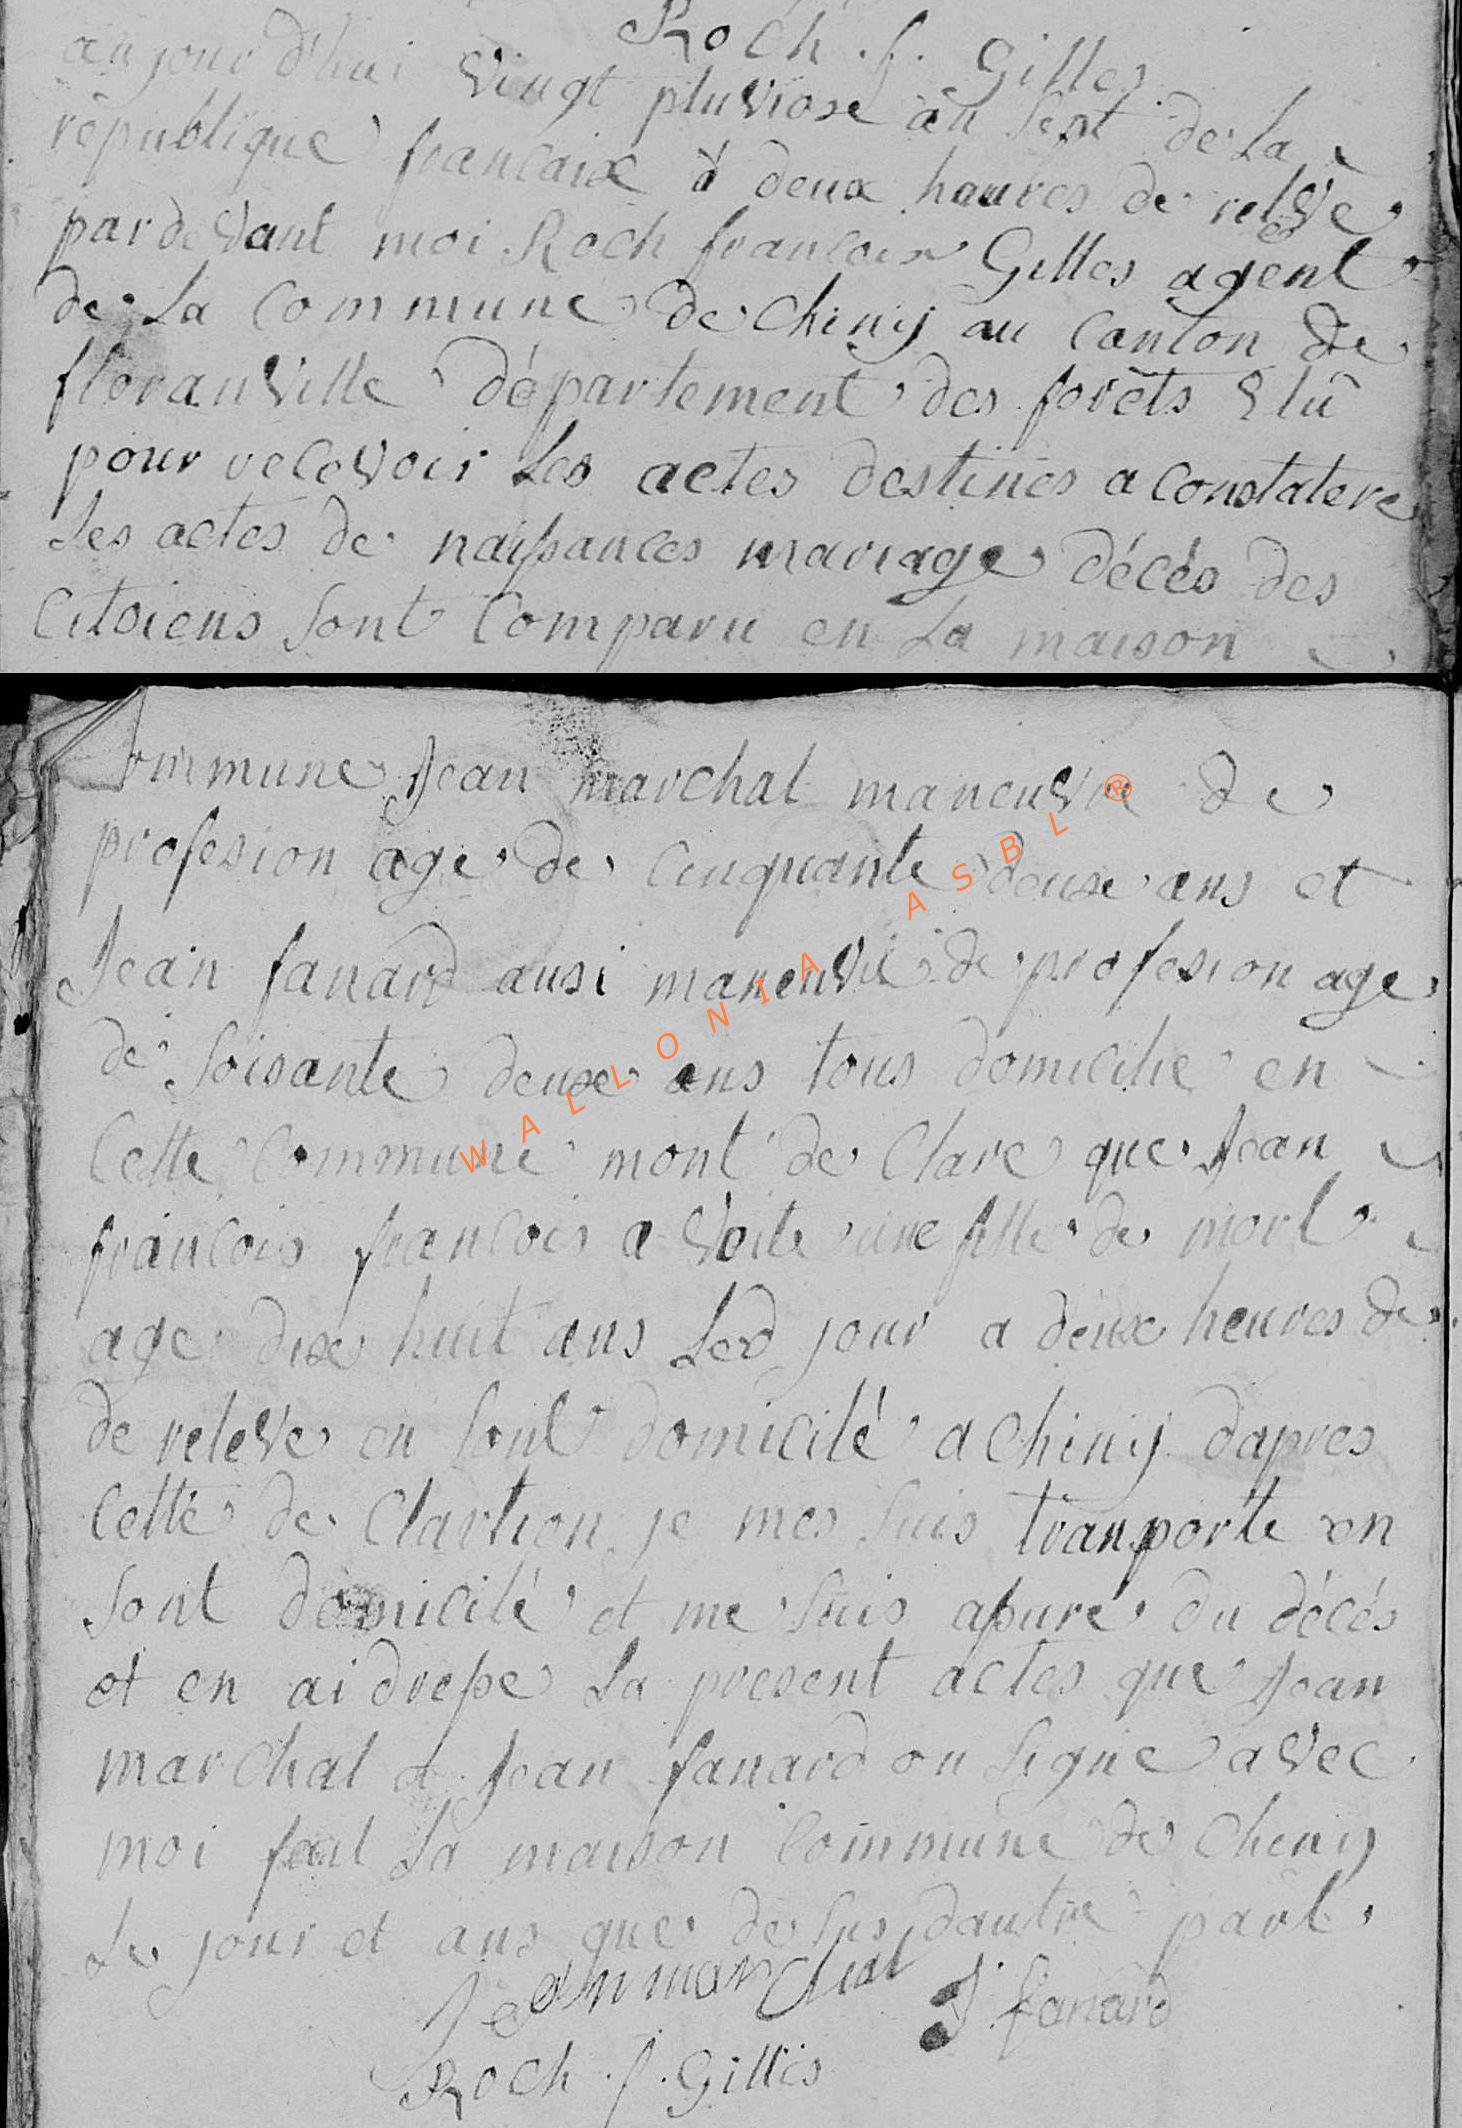 Roch . f . Gilles
aujourd'hui vingt pluviose an sept de La
republique francaise à deux heures de relvé
pardevant moi Roch francois Gilles agent
de La Commune de Chiny au Canton de
floranville département des forêts élû
pour recevoir Les actes destines a Constatere
Les actes de naissances mariage décés des
Citoiens Sont Comparu en La maison
Commune Jean marchal maneuvre de
profesion age de Cinquante deuxe ans et
Jean fanard ausi maneuvre de profesion age
de Soisante deuxe ans tous domicilie en
Cette Commune mont de Clare que Jean
francois francois a Voite une fille de mort
age dixe huit ans Led jour a deuxe heures de
de releve en Sont domicilé a Chiny dapres
Cette de Clartion je mes Suis tranporte en
Sont domicilé et me Suis assure du décés
et en ai dresse La present actes que Jean
marchal et Jean fanard on Signe avec
moi fait La maison Commune de Chiny
Le jour et ans que de Sus dautre part
Jean marchal J fanard
Roch . f . Gilles
WALLONIA ASBL ®